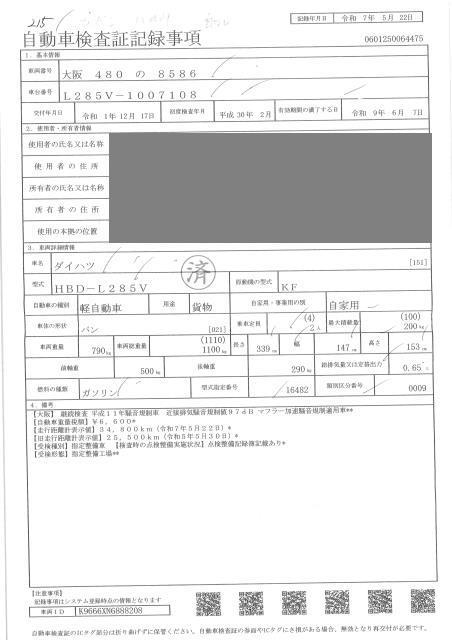 215
記録年月日 令和 7年 5月 22日
自動車検査証記録事項
0601250064475
1. 基本情報
車両番号 大阪 480 の 8586
車台番号 L285V-1007108
交付年月日 令和 1年 12月 17日 初度検査年月 平成 30年 2月 有効期間の満了する日 令和 9年 6月 7日
2. 使用者・所有者情報
使用者の氏名又は名称
使用者の住所
所有者の氏名又は名称
所有者の住所
使用の本拠の位置
3. 車両詳細情報
車名 ダイハツ [151]
済
型式 HBD-L285V 原動機の型式 KF
自動車の種別 軽自動車 用途 貨物 自家用・事業用の別 自家用
車体の形状 バン [021] 乗車定員 (4) 2人 最大積載量 (100) 200kg
車両重量 790kg 車両総重量 (1110) 1100kg 長さ 339cm 幅 147cm 高さ 153cm
前軸重 500kg 後軸重 290kg 総排気量又は定格出力 0.65
燃料の種類 ガソリン 型式指定番号 16482 類別区分番号 0009
4. 備考
【大阪】 継続検査 平成11年騒音規制車 近接排気騒音規制値97dB マフラー加速騒音規制適用車**
【自動車重量税額】¥6,600*
【走行距離計表示値】34,800km（令和7年5月22日）*
【旧走行距離計表示値】25,500km（令和5年5月30日）*
【受検種別】指定整備車 【検査時の点検整備実施状況】点検整備記録簿記載あり*
【受検形態】指定整備工場**
【注意事項】
記録事項はシステム登録時点の情報となります
車両ID K9666XN6888208
自動車検査証のICタグ部分は折り曲げずに保管ください。自動車検査証の券面やICタグにき損がある場合、無効となり再交付が必要です。